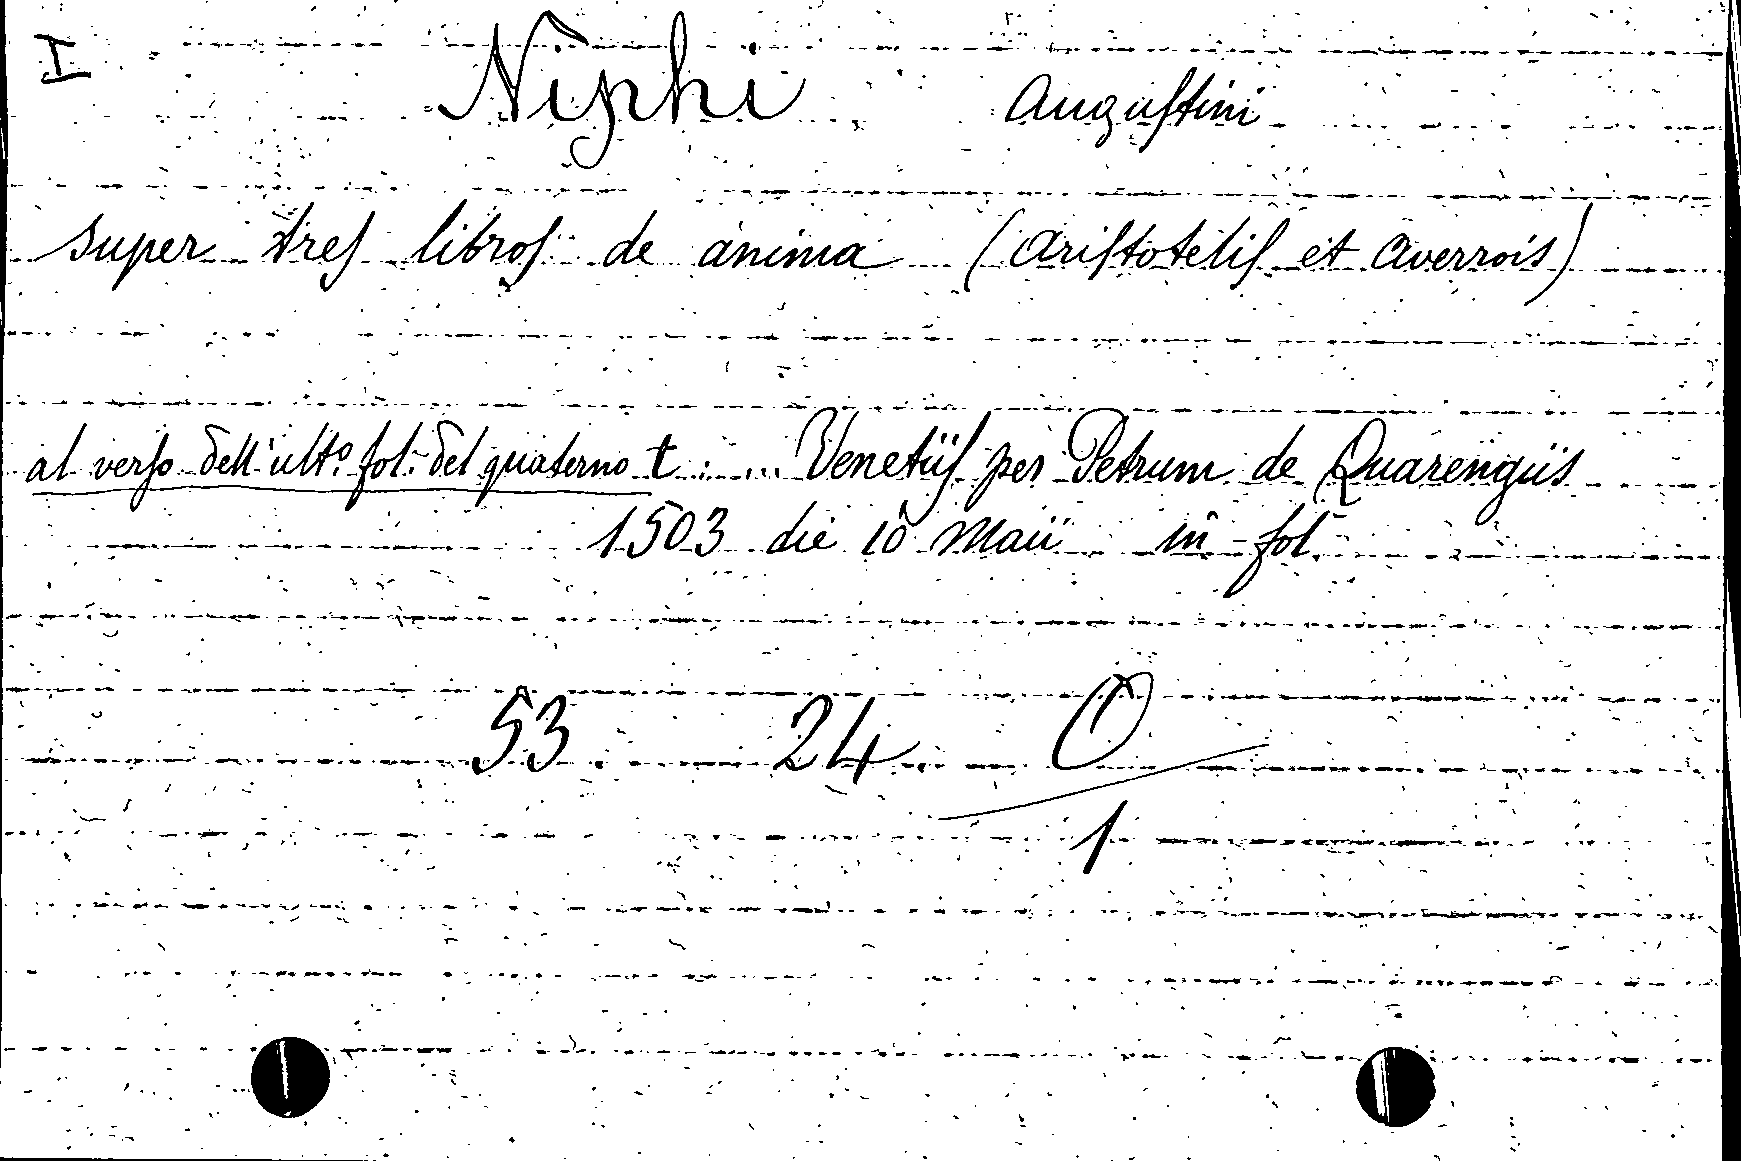 I
Niphi Auguſtini
super treſ libroſ de anima (Ariſtoteliſ et Averrois)
al verſo dell'ult.º fol. del quaterno t. ... Venetiiſ per Petrum de Quarengiis
1503 die 10 Maii in fol.
53 24 O
1